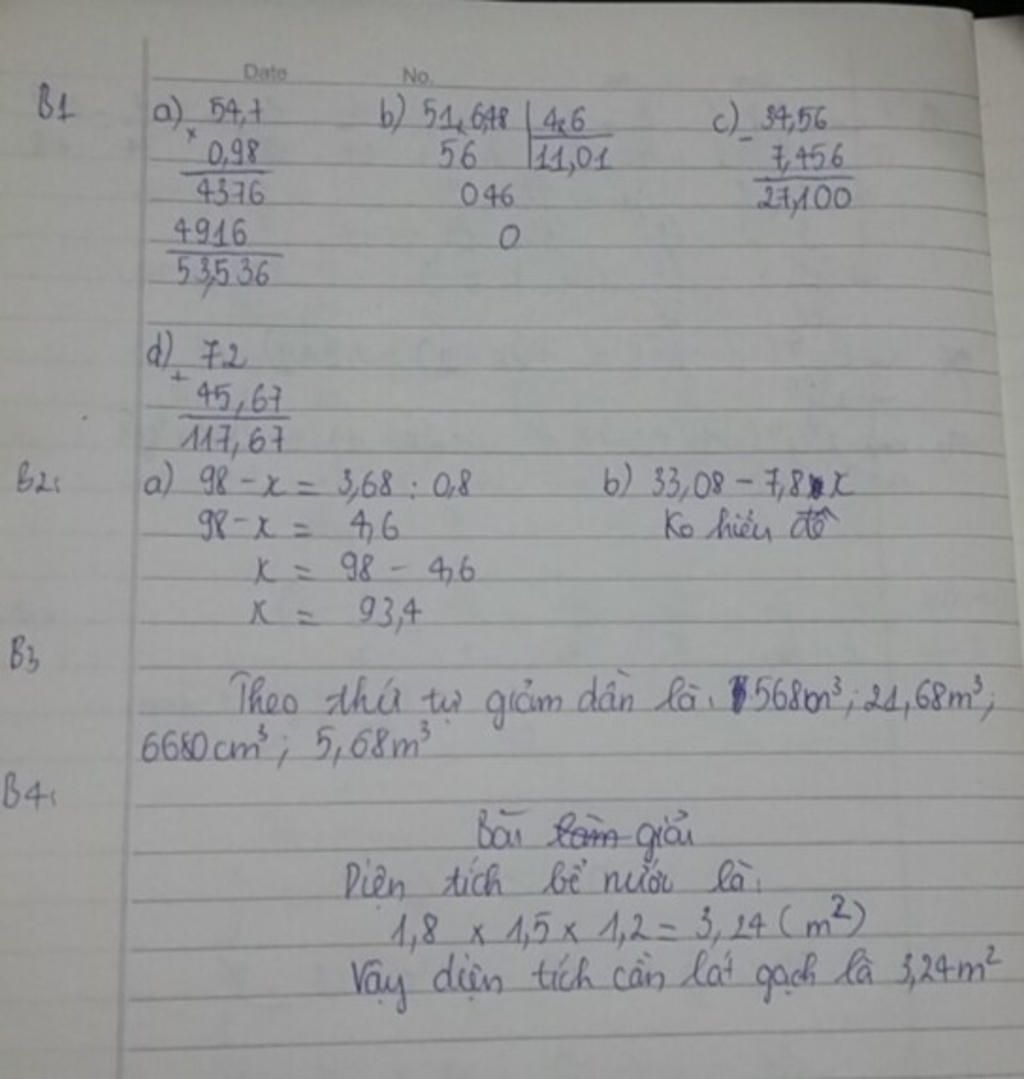 Date No.
B1 a) 54,7 b) 51,648 4,6 c) 34,56
× 0,98 56 11,01 - 7,456
4376 046 27,100
4916 0
53,536
d) 72
+ 45,67
117,67
B2: a) 98 - x = 3,68 : 0,8 b) 33,08 - 7,8 x
98 - x = 4,6 Ko hiểu đề
x = 98 - 4,6
x = 93,4
B3
Theo thứ tự giảm dần là: 568m³; 21,68m³;
6680cm³; 5,68m³
B4:
Bài làm giải
Diện tích bể nước là:
1,8 x 1,5 x 1,2 = 3,24 (m²)
Vậy diện tích cần lát gạch là 3,24m²